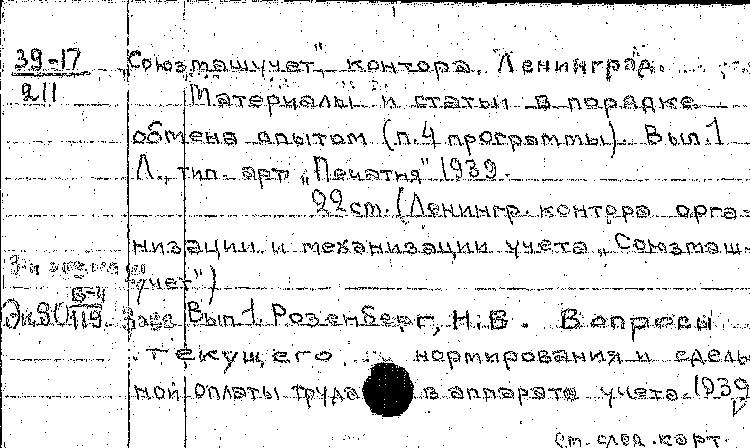 39-17
211
"Союзмашучет", контора. Ленинград.
Материалы и статьи в порядке
обмена опытом (п.4 программы). Вып.1
Л., тип. арт. „Печатня" 1939.
22 ст. (Ленингр. контора орга-
низации и механизации учета „Союзмаш-
учет")
3-й экземпляр
Эк80 В-4
119
Вып 1. Розенберг, Н.В. Вопросы
текущего нормирования и сдель
ной оплаты труда в аппарате учета. 1939
См. след. карт.